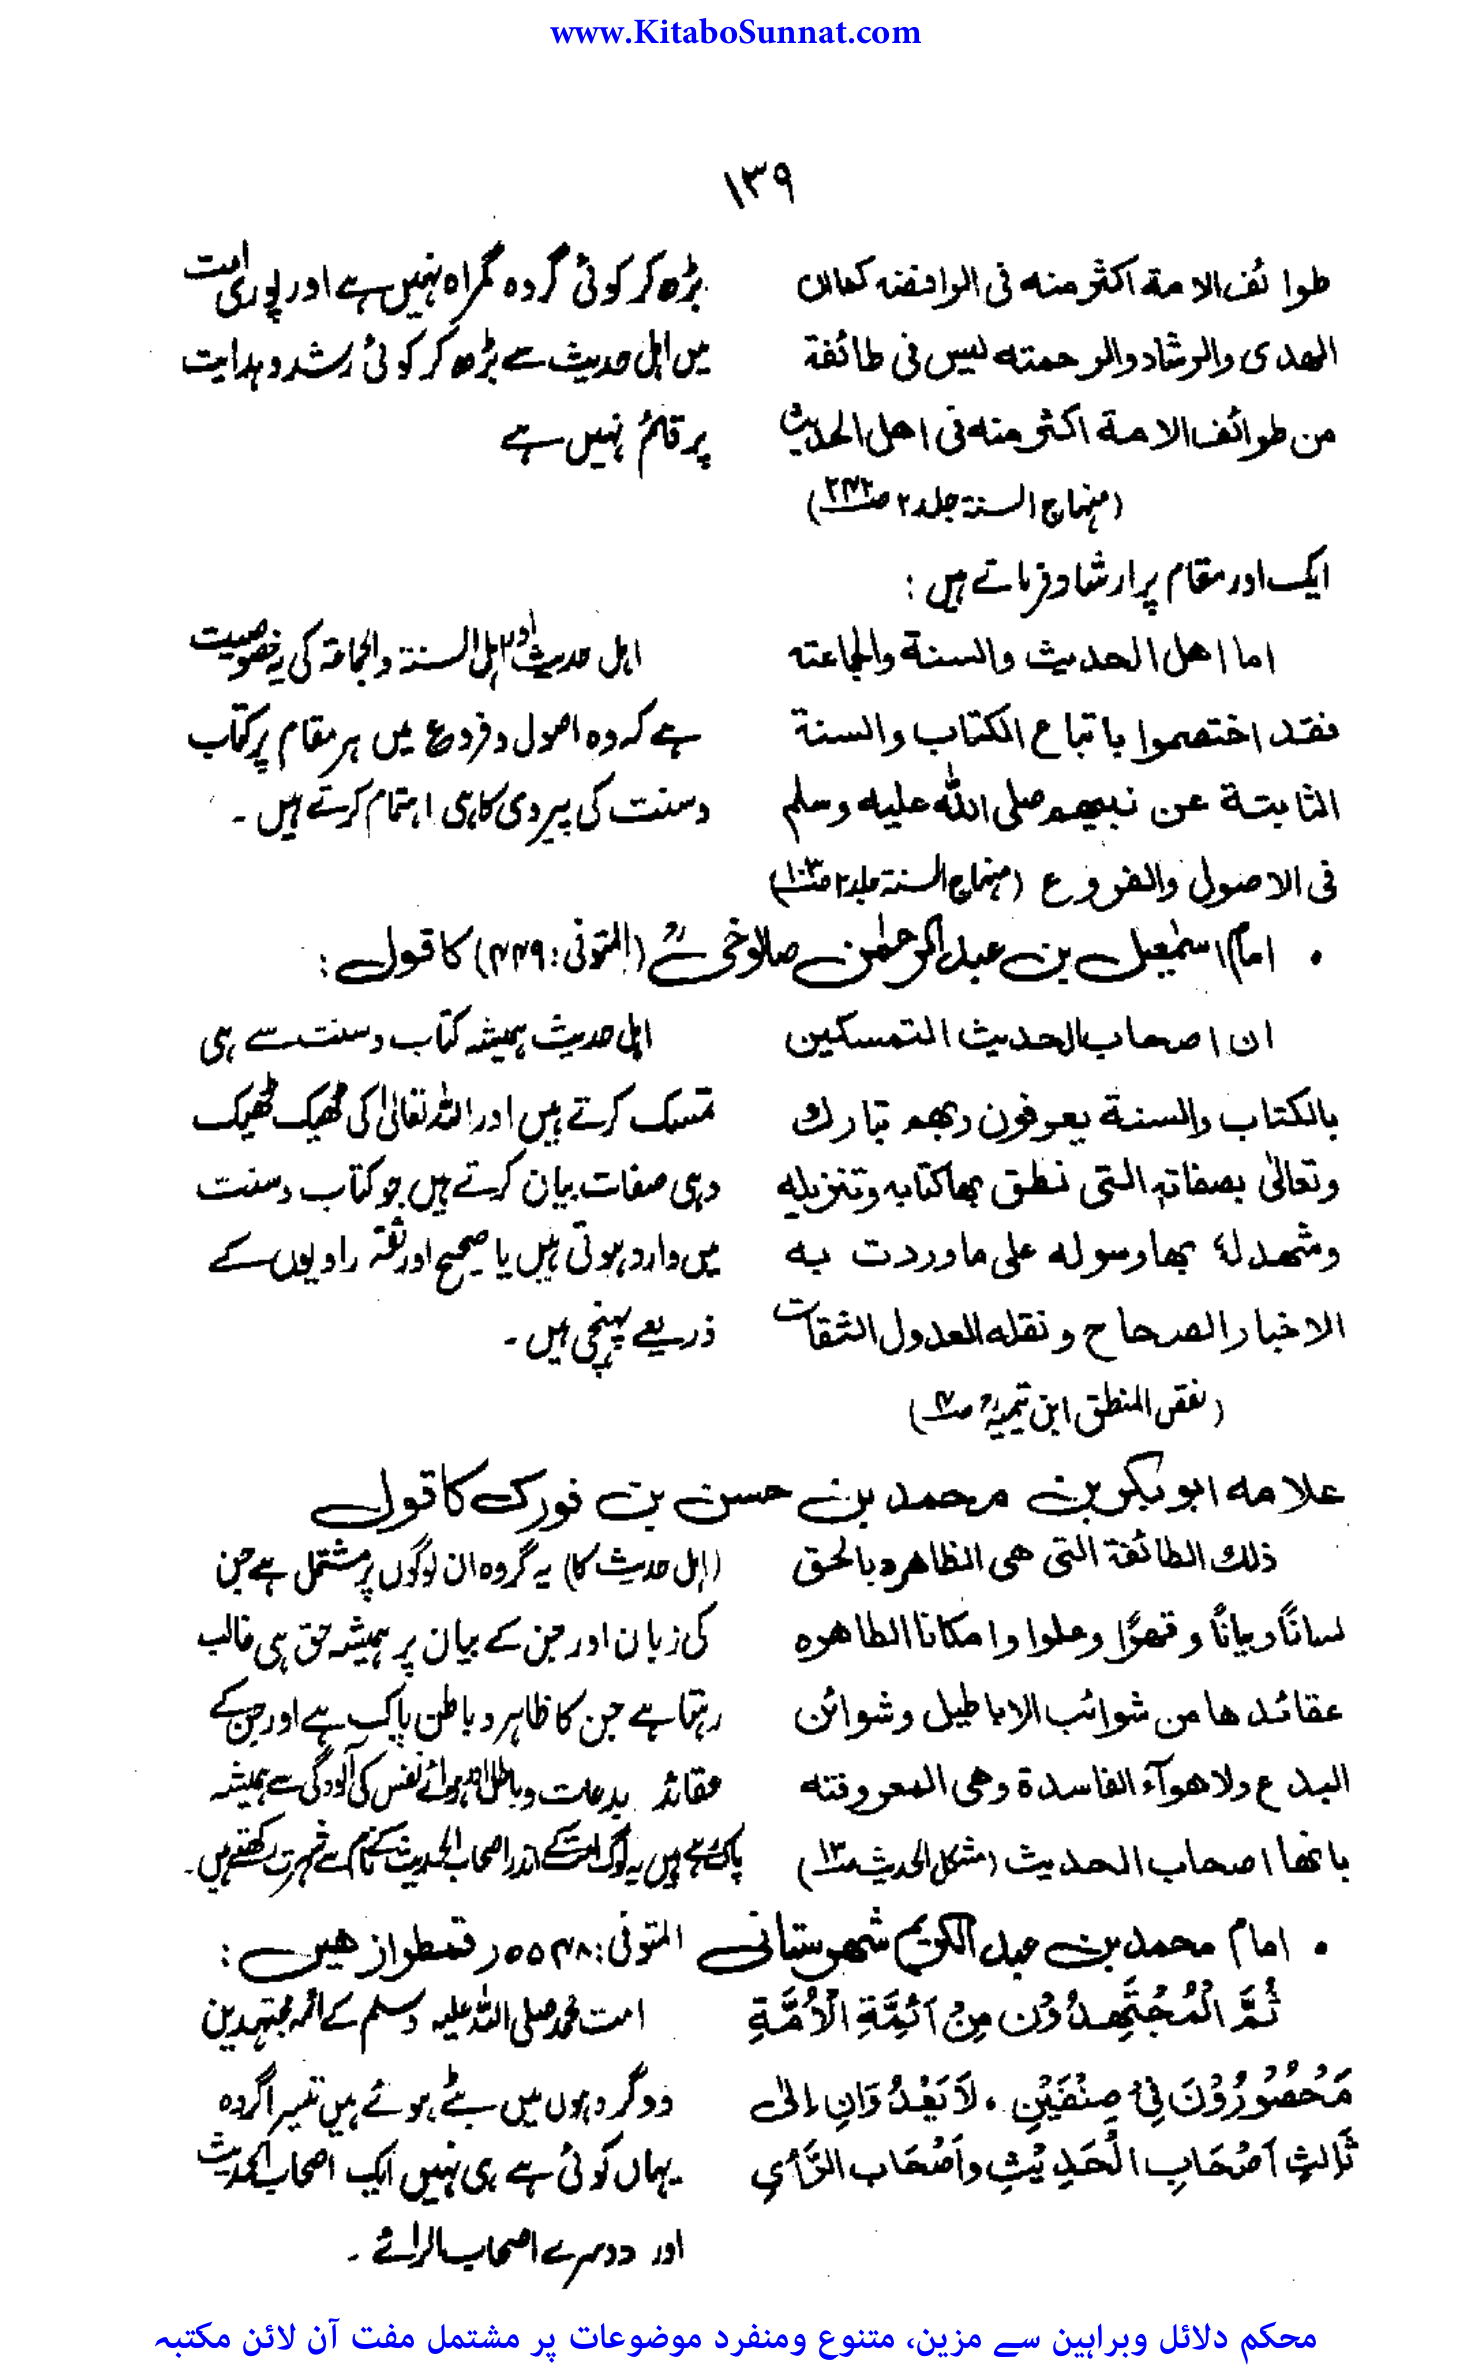 www.KitaboSunnat.com
۱۳۹
طوائف الامة اکثر منه فی الرافضه کماان
الهدى والرشاد والرحمته لیس فی طائفة
من طوائف الامة اکثر منه فی اهل الحدیث
(منہاج السنۃ جلد ۲ ص۲۴۲)
بڑھ کر کوئی گروہ گمراہ نہیں ہے اور پوری امت
میں اہل حدیث سے بڑھ کر کوئی رشد و ہدایت
پر قائم نہیں ہے
ایک اور مقام پر ارشاد فرماتے ہیں :
اما اهل الحدیث والسنة والجاعته
فقد اختصموا باتباع الکتاب والسنة
الثابتة عن نبیهم صلی الله علیه وسلم
فی الاصول والفروع (منہاج السنۃ جلد ۲ ص۱۰۳)
اہل حدیث اور اہل السنۃ والجماعۃ کی یہ خصوصیت
ہے کہ وہ اصول و فروع میں ہر مقام پر کتاب
و سنت کی پیروی کا ہی اہتمام کرتے ہیں ۔
• امام اسمٰعیل بن عبدالرحمٰن صالوخیؒ (المتوفی: ۴۴۹) کا قول :
ان اصحاب الحدیث التمسکین
بالکتاب والسنة یعرفون ربهم تبارك
وتعالیٰ بصفاته التی نطق بها کتابه وتنزیله
وشهد لهٗ بها رسوله علی ما وردت به
الاخبار الصحاح ونقله العدول الثقات
(نقض المنطق ابن تیمیہؒ ص۴)
اہل حدیث ہمیشہ کتاب و سنت سے ہی
تمسک کرتے ہیں اور اللہ تعالیٰ کی ٹھیک ٹھیک
وہی صفات بیان کرتے ہیں جو کتاب و سنت
میں وارد ہوتی ہیں یا صحیح اور ثقہ راویوں کے
ذریعے پہنچی ہیں ۔
علامه ابوبکر بن محمد بن حسن بن فورک کا قول
ذلك الطائفة التی هی الظاهره بالحق
لساناً وبیاناً و قهرًا وعلوا وامکانا الطاهره
عقائدها من شوائب الاباطیل وشوائن
البدع ولاهوآء الفاسدة وهی المعروفته
بانها اصحاب الحدیث (مشکل الحدیث ص۱۳)
(اہل حدیث کا) یہ گروہ ان لوگوں پر مشتمل ہے جن
کی زبان اور جن کے بیان پر ہمیشہ حق ہی غالب
رہتا ہے جن کا ظاہر و باطن پاک ہے اور جن کے
عقائد بدعات و باطل اور ہوائے نفس کی آلودگی سے ہمیشہ
پاک رہے ہیں یہ لوگ امت کے اندر اصحاب الحدیث کے نام سے شہرت رکھتے ہیں ۔
• امام محمد بن عبدالکریم شهرستانی المتوفی: ۵۴۸ھ رقمطراز هیں :
ثُمَّ الْمُجْتَهِدُوْن مِنْ اَئِمَّةِ الْاُمَّةِ
مَحْصُوْرُوْنَ فِیْ صِنْفَیْنِ ۔ لَا یَعْدُ وَانِ اِلٰی
ثَالِثٍ اَصْحَابِ الْحَدِیْثِ واَصْحَابِ الرَّأیِ
امت محمد صلی اللہ علیہ وسلم کے ائمہ مجتہدین
دو گروہوں میں بٹے ہوئے ہیں تیسرا گروہ
یہاں کوئی ہے ہی نہیں ایک اصحاب الحدیث
اور دوسرے اصحاب الرائے ۔
محکم دلائل وبراہین سے مزین، متنوع ومنفرد موضوعات پر مشتمل مفت آن لائن مکتبہ